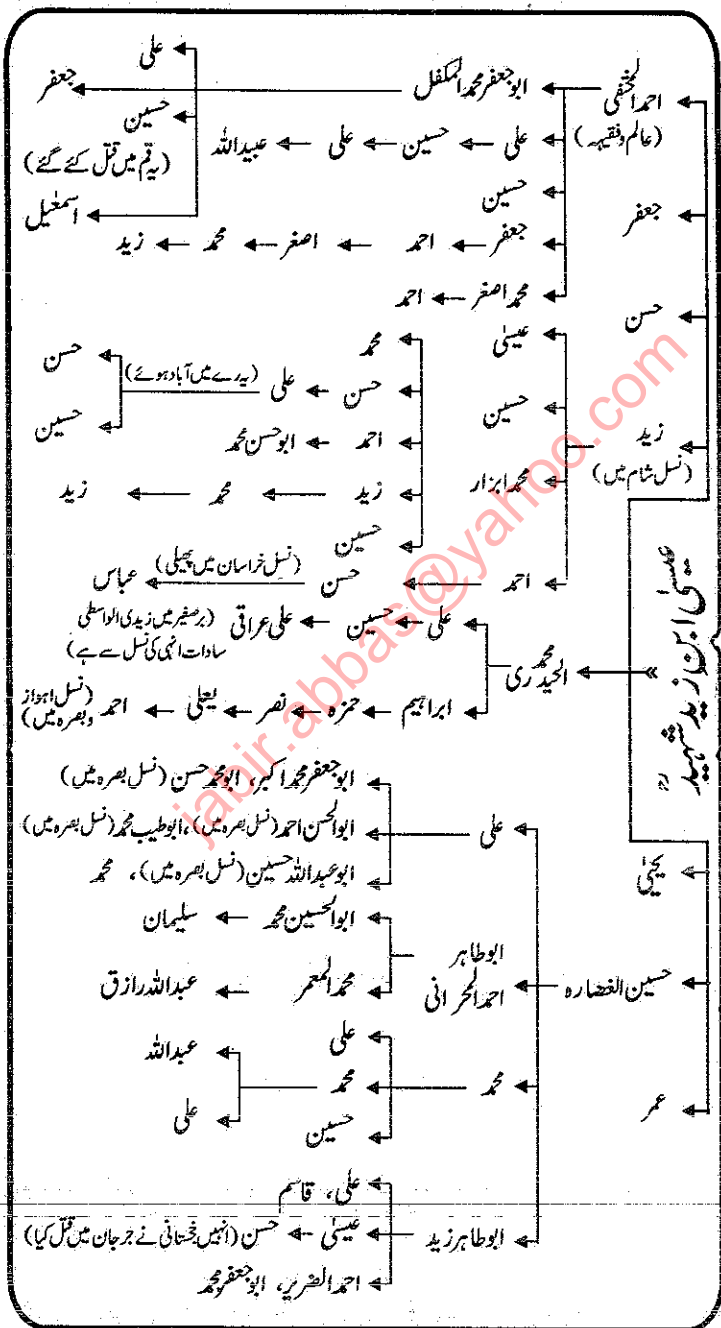 عیسیٰ ابن زید شہیدؒ
احمد المختفی
(عالم وفقیہہ)
ابوجعفر محمد المکفل
علی
جعفر
حسین
(یہ قم میں قتل کئے گئے)
اسمعٰیل
علی ← حسین ← علی ← عبیداللہ
حسین
جعفر ← احمد ← اصغر ← محمد ← زید
محمد اصغر ← احمد
جعفر
حسن
زید
(نسل شام میں)
عیسیٰ
حسین
محمد ابزار
محمد
حسن ← علی (یہ رے میں آباد ہوئے)
حسن
حسین
احمد ← ابوحسن محمد
زید ← محمد ← زید
حسین
احمد ← حسن ← عباس
(نسل خراسان میں پھیلی)
محمد
الحیدری
علی ← حسین ← علی عراقی (برصغیر میں زیدی الواسطی
سادات انہی کی نسل سے ہے)
ابراہیم ← حمزہ ← نصر ← یعلیٰ ← احمد (نسل اہواز
وبصرہ میں)
یحییٰ
حسین الغضارہ
علی
ابوجعفر محمد اکبر، ابومحمد حسن (نسل بصرہ میں)
ابوالحسن احمد (نسل بصرہ میں)، ابوطیب محمد (نسل بصرہ میں)
ابوعبداللہ حسین (نسل بصرہ میں)، محمد
ابوطاہر
احمد الحرانی
ابوالحسین محمد ← سلیمان
محمد المعمر ← عبداللہ رازق
محمد
علی
محمد
عبداللہ
علی
حسین
ابوطاہر زید
علی، قاسم
عیسیٰ ← حسن (انہیں خجستانی نے جرجان میں قتل کیا)
احمد الضریر، ابوجعفر محمد
عمر
jabir.abbas@yahoo.com